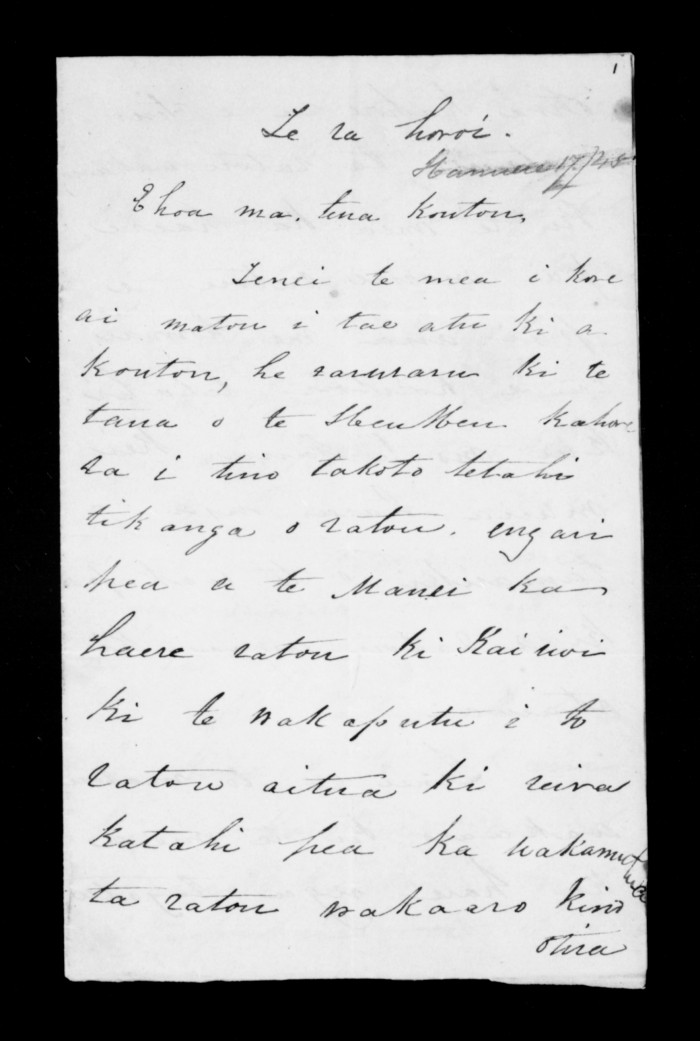 1
Te ra horoi.
Hanuere 17/45
Ehoa ma. tena Koutou,
Tenei te mea i kore
ai matou i tae atu ki a
Koutou, he raruraru ki te
taua o te HeuHeu kahore
ra i tino takoto tetahi
tikanga o ratou. engari
pea a te Manei ka
haere ratou ki Kai iwi
ki te wakaputu i to
ratou aitua ki reira
katahi pea ka wakamutua
ta ratou wakaaro kino
otira